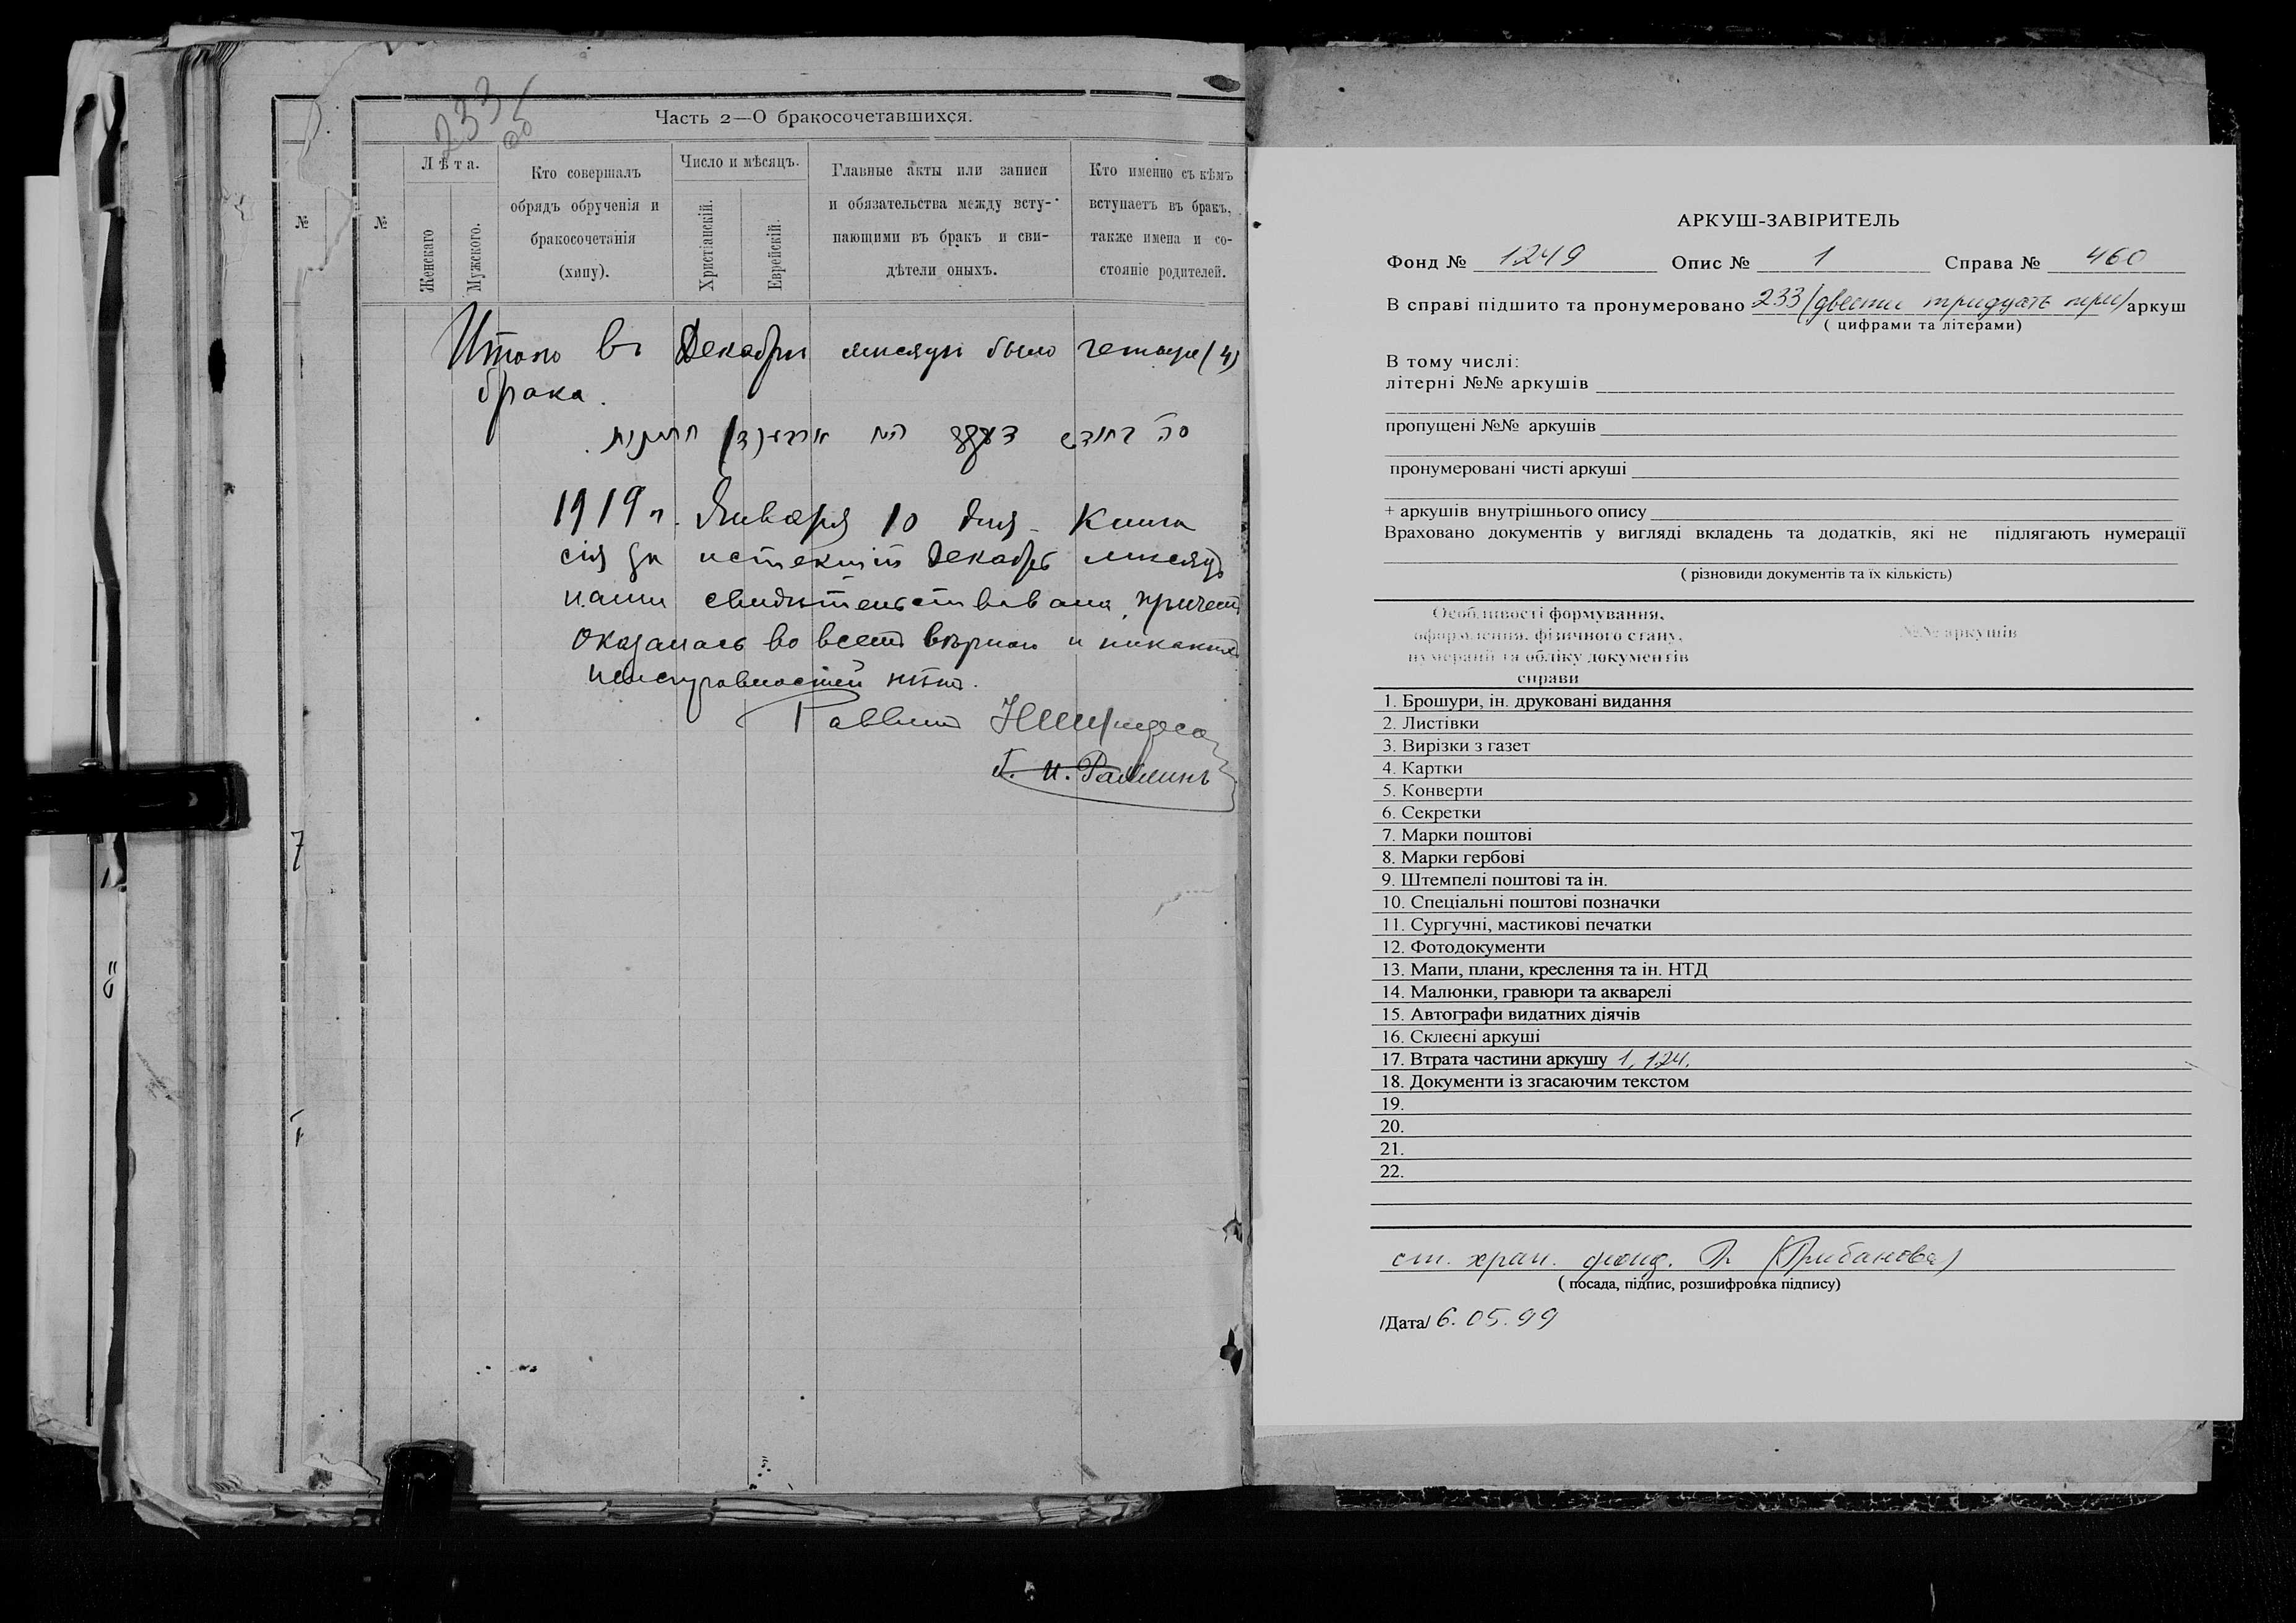 233 об
Часть 2—О бракосочетавшихся.
№
№
Лѣта.
Женскаго
Мужского.
Кто совершалъ
обрядъ обрученія и
бракосочетанія
(хипу).
Число и мѣсяцъ.
Христіанскій.
Еврейскій.
Главные акты или записи
и обязательства между всту-
пающими въ бракъ и сви-
дѣтели оныхъ.
Кто именно съ кѣмъ
вступаетъ въ бракъ,
также имена и со-
стояніе родителей.
Итого въ Декабрѣ мѣсяцѣ было четыре (4)
брака.
1919 г. Января 10 дня. Книга
сія за истекшій Декабрь мѣсяцъ
нами свидѣтельствована, причемъ
оказалась во всемъ вѣрною и никакихъ
неисправностей нѣтъ.
Раввинъ
АРКУШ-ЗАВІРИТЕЛЬ
Фонд № 1249 Опис № 1 Справа № 460
В справі підшито та пронумеровано 233 (двести тридцать три) аркуш
( цифрами та літерами)
В тому числі:
літерні №№ аркушів
пропущені №№ аркушів
пронумеровані чисті аркуші
+ аркушів внутрішнього опису
Враховано документів у вигляді вкладень та додатків, які не підлягають нумерації
( різновиди документів та їх кількість)
Особливості формування,
оформлення, фізичного стану,
нумерації та обліку документів
справи
№№ аркушів
1. Брошури, ін. друковані видання
2. Листівки
3. Вирізки з газет
4. Картки
5. Конверти
6. Секретки
7. Марки поштові
8. Марки гербові
9. Штемпелі поштові та ін.
10. Спеціальні поштові позначки
11. Сургучні, мастикові печатки
12. Фотодокументи
13. Мапи, плани, креслення та ін. НТД
14. Малюнки, гравюри та акварелі
15. Автографи видатних діячів
16. Склеєні аркуші
17. Втрата частини аркушу 1, 124.
18. Документи із згасаючим текстом
19.
20.
21.
22.
ст. хран. фонд. (Грибанова)
( посада, підпис, розшифровка підпису)
/Дата/ 6.05.99